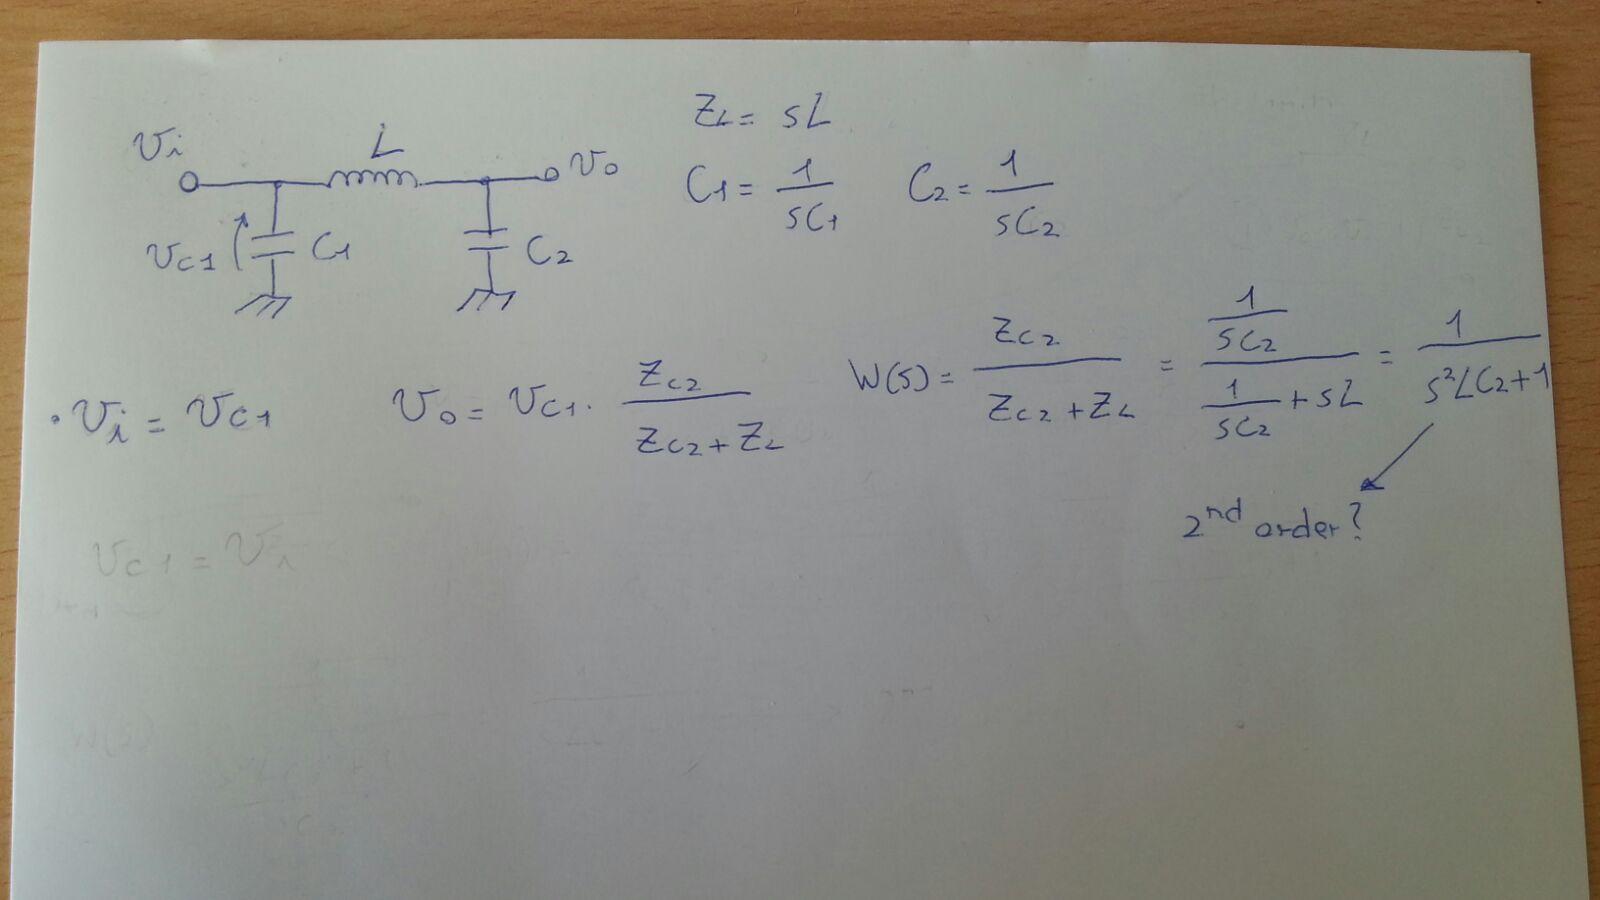 Vi
L
Vo
VC1
C1
C2
ZL = sL
C1 = 1/sC1   C2 = 1/sC2
• Vi = VC1   Vo = VC1 · ZC2/(ZC2 + ZL)   W(s) = ZC2/(ZC2 + ZL) = (1/sC2)/(1/sC2 + sL) = 1/(s²LC2 + 1)
2nd order?
VC1 = Vi
W(s)